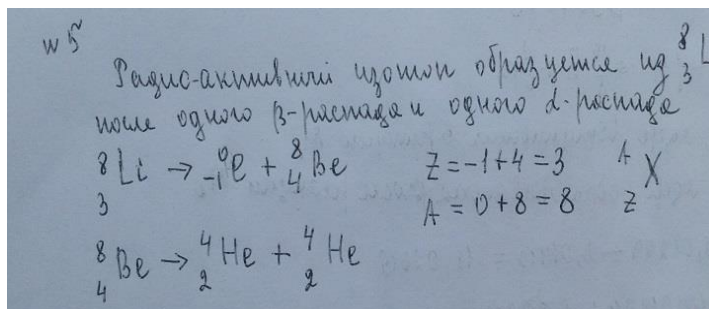 №5
Радио-активный изотоп образуется из ⁸₃L
после одного β-распада и одного α-распада
⁸₃Li → ⁰₋₁e + ⁸₄Be Z = -1 + 4 = 3 ᴬ_Z X
A = 0 + 8 = 8
⁸₄Be → ⁴₂He + ⁴₂He